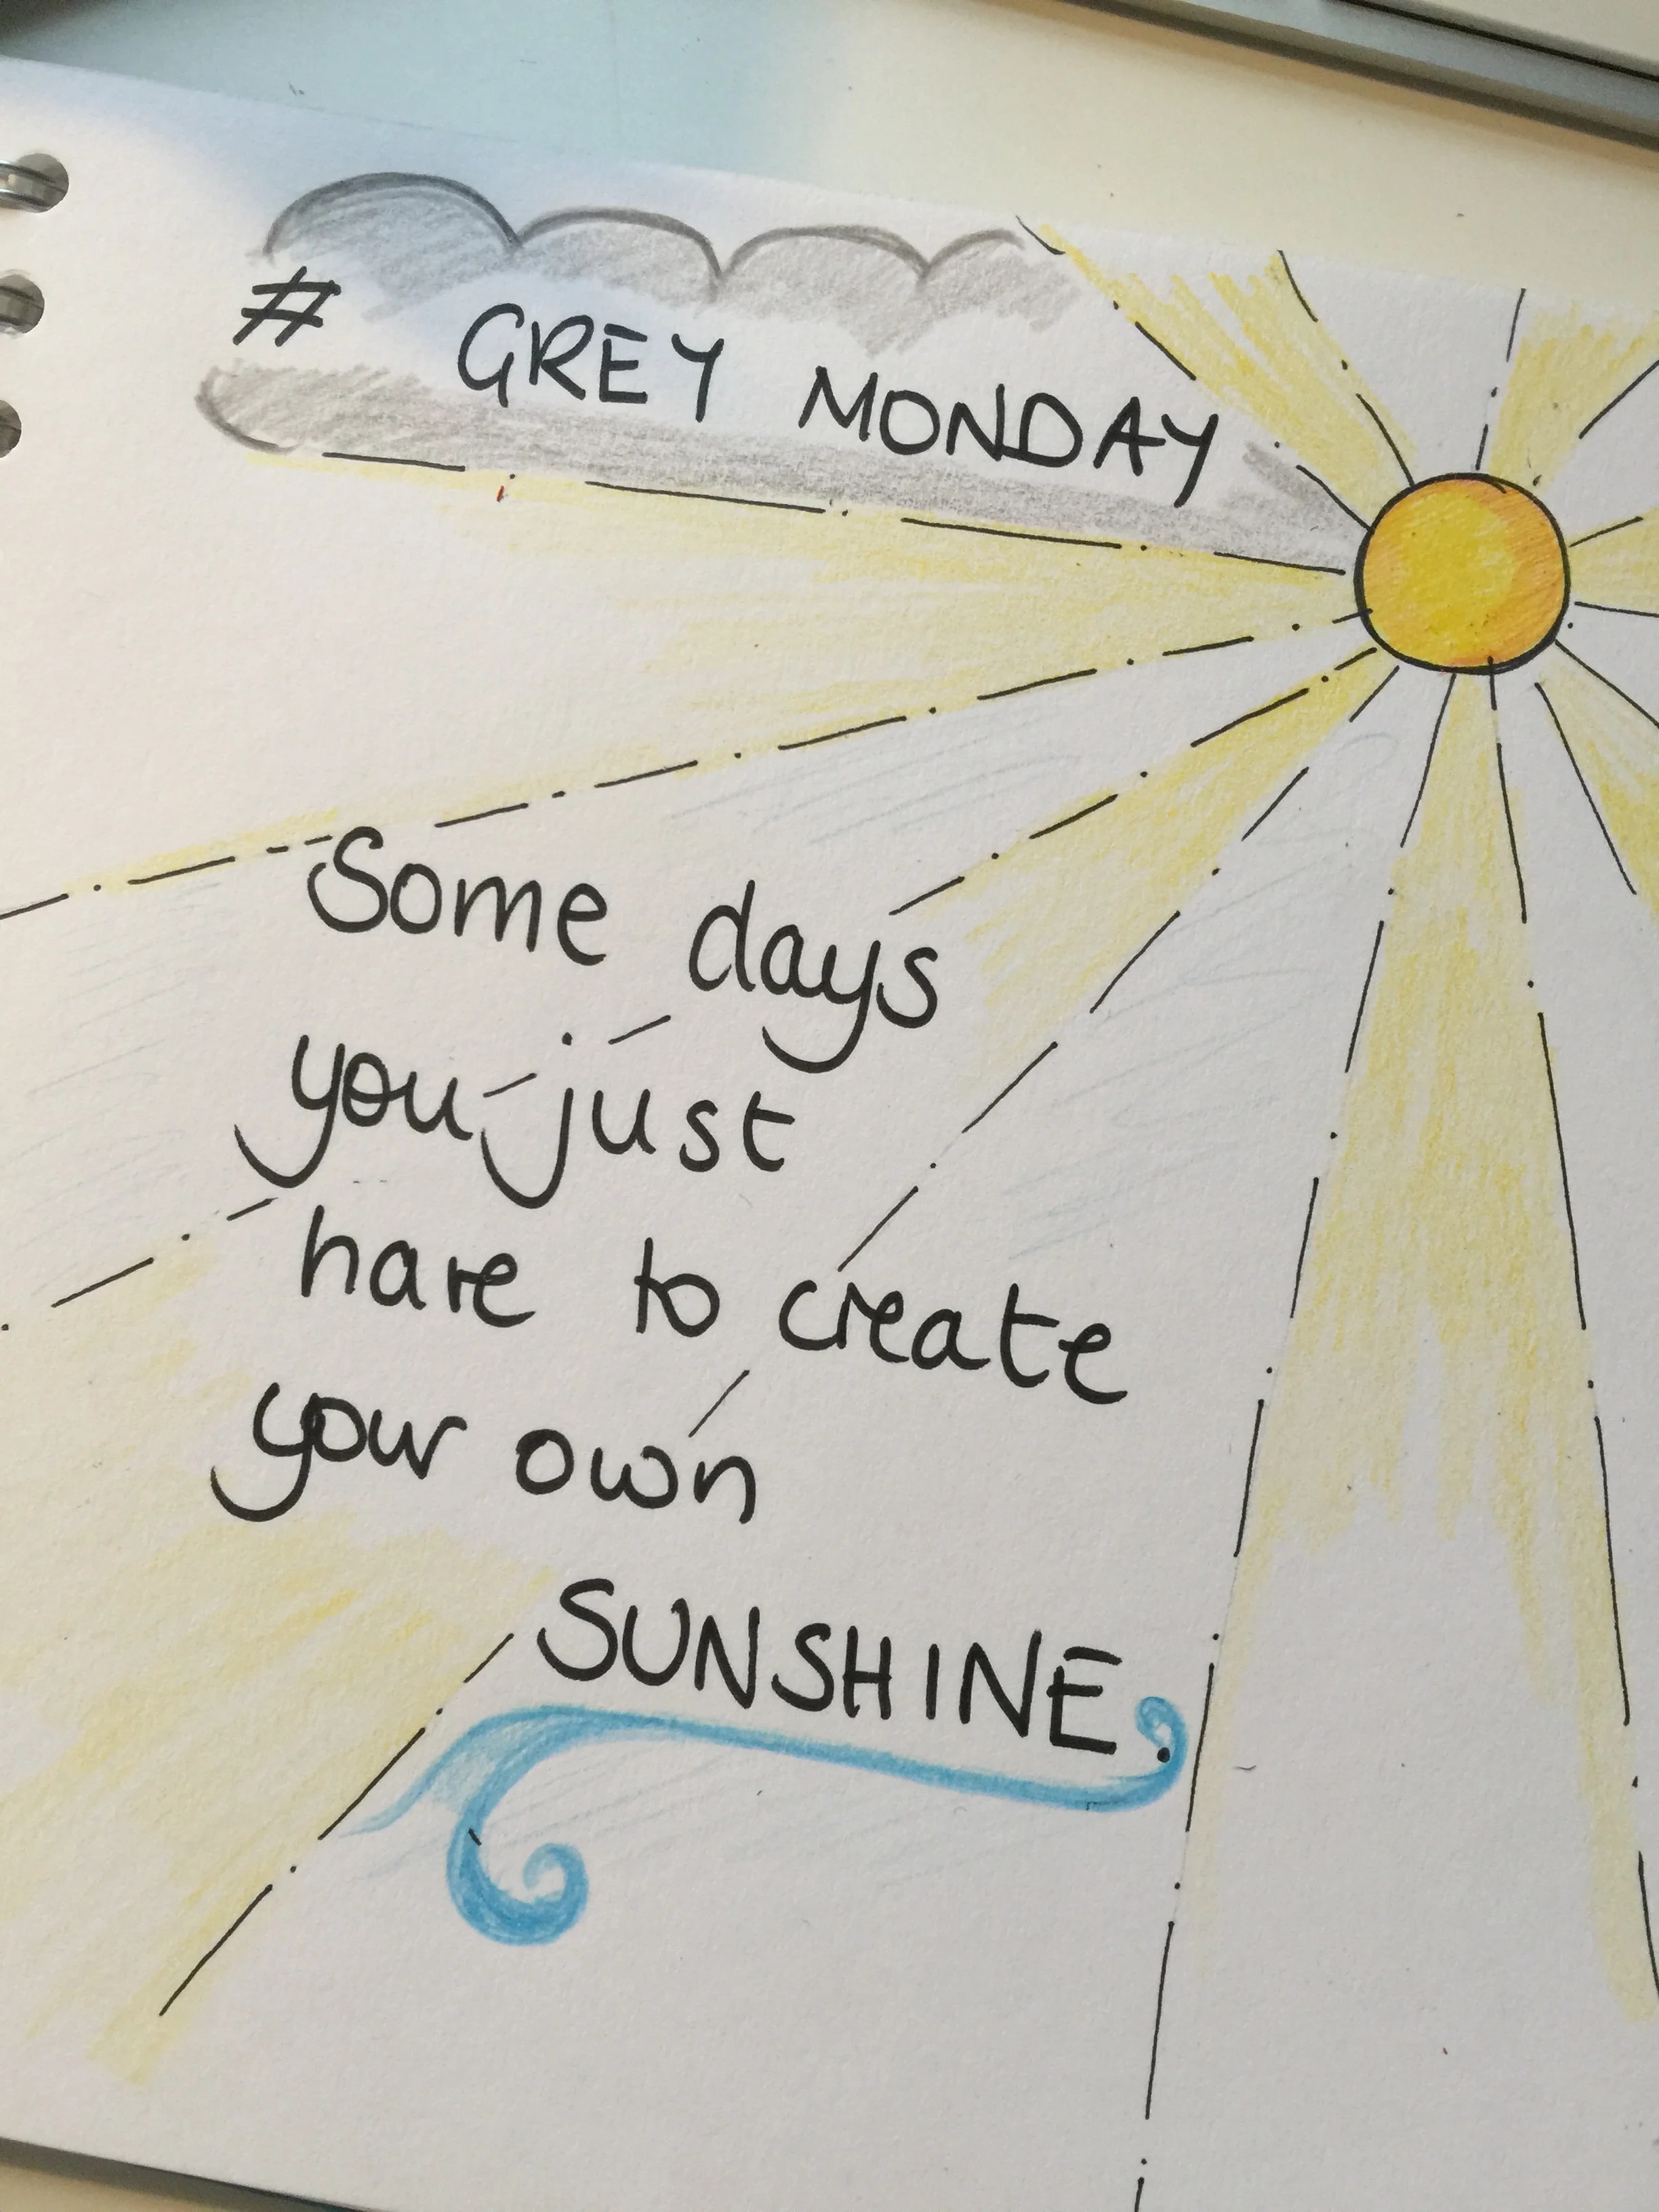 # GREY MONDAY
Some days
you just
have to create
your own
SUNSHINE.